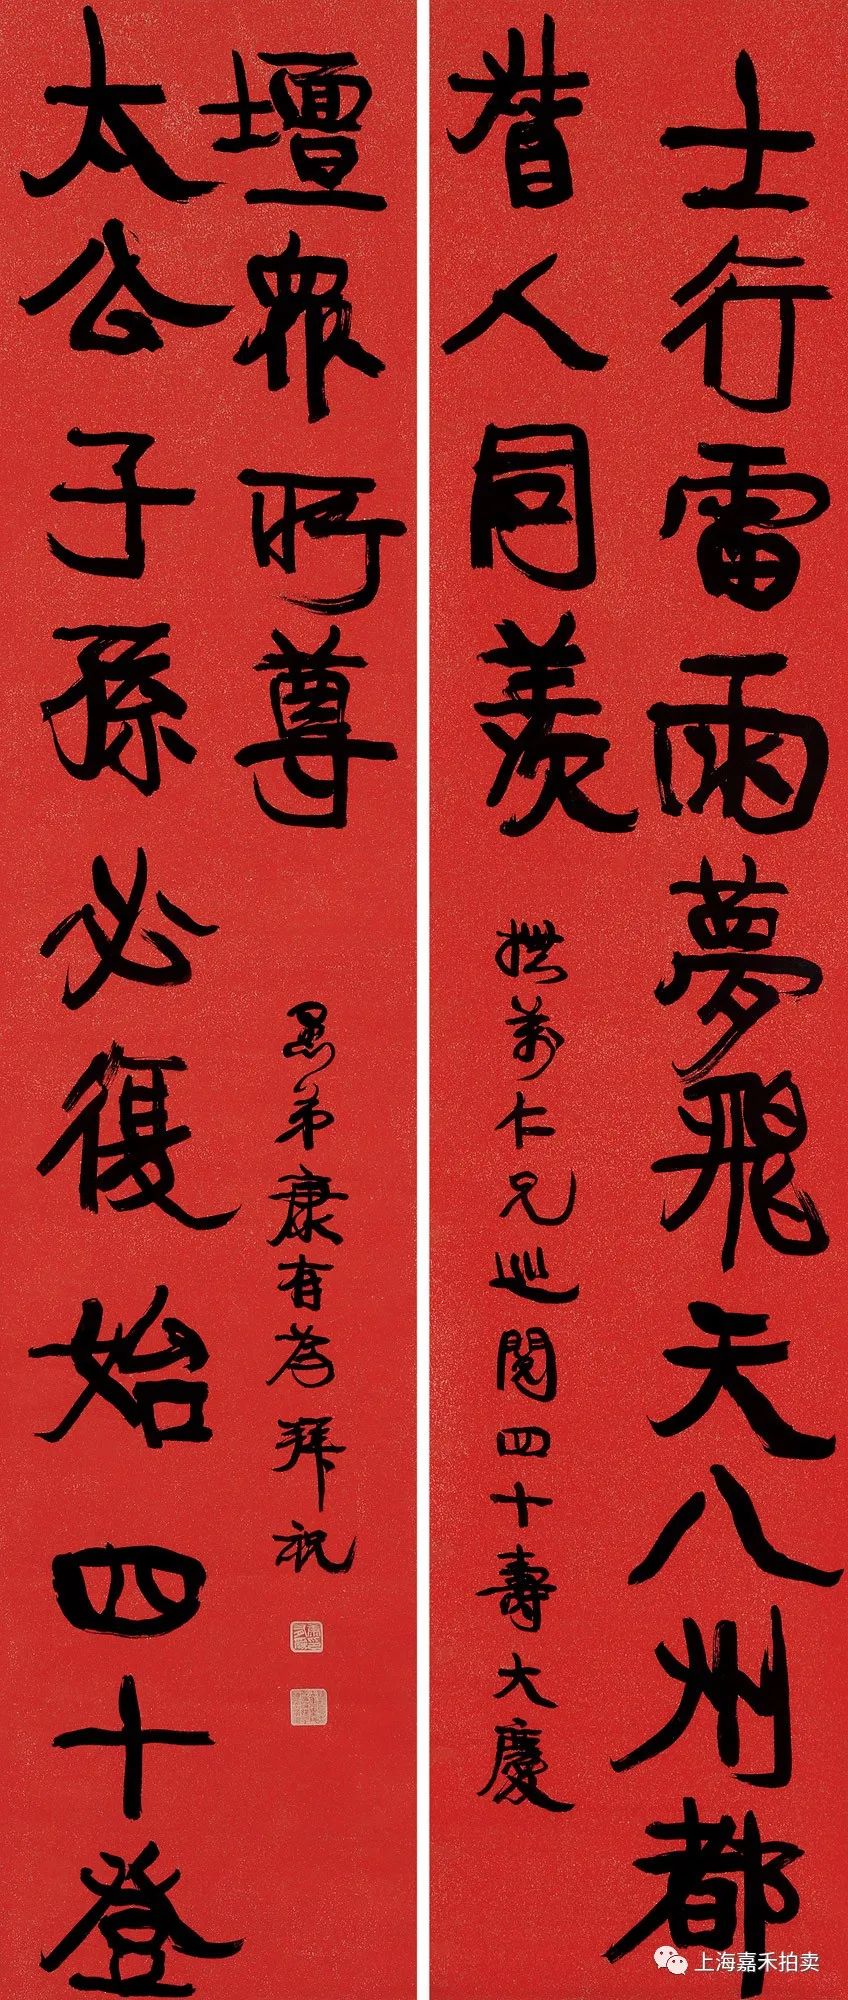 士行雷雨夢飛天八州都
督人同羨
撫萬仁兄巡閱四十壽大慶
太公子孫必復始四十登
壇眾所尊
愚弟康有為拜祝
上海嘉禾拍卖